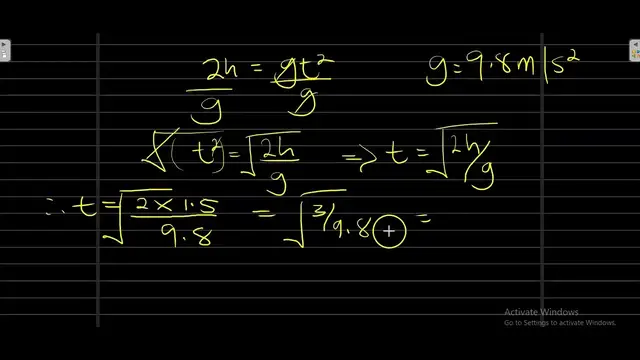 2h/g = gt²/g g = 9.8m/s²
√(t² = √2h/g => t = √2h/g
∴ t = √2 × 1.5/9.8 = √3/9.8 =
Activate Windows
Go to Settings to activate Windows.